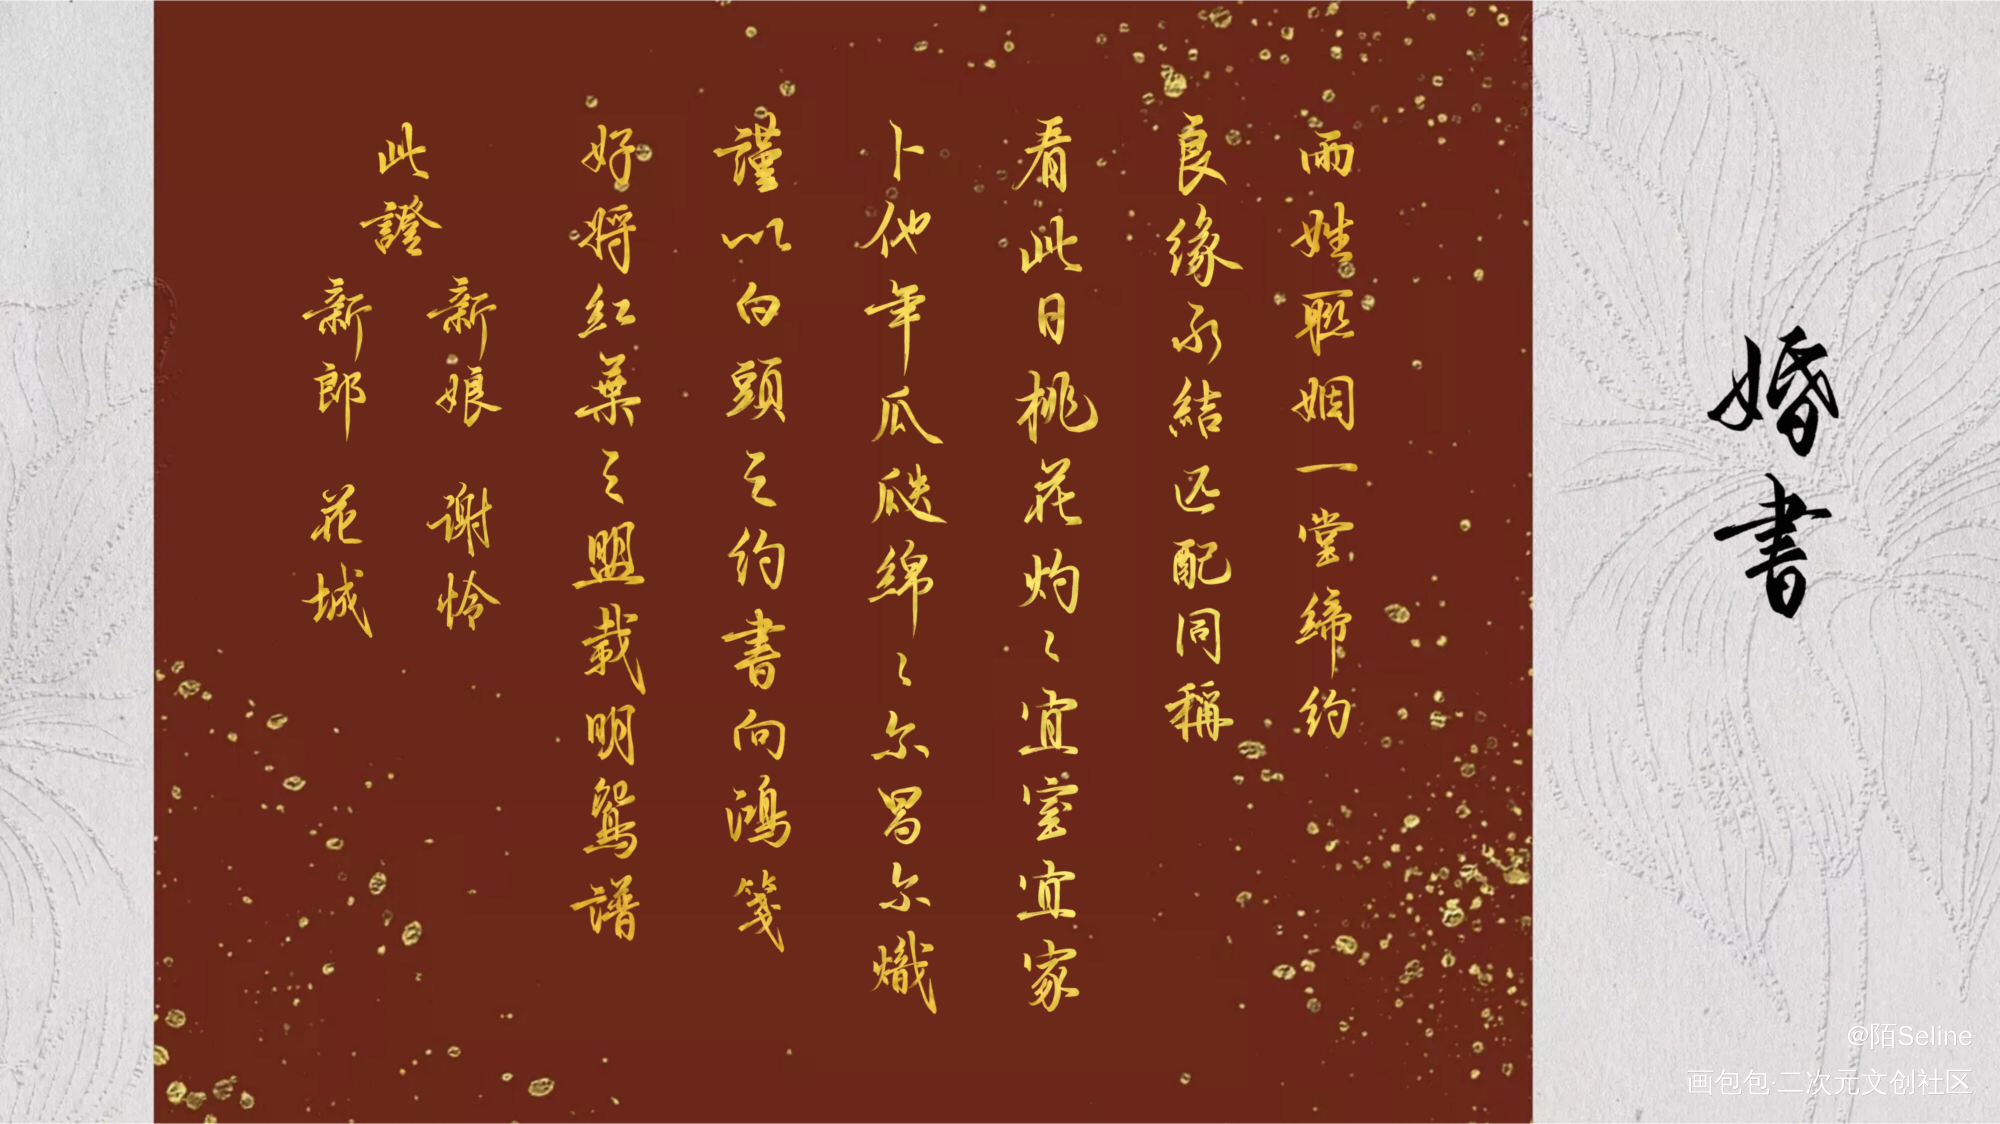 婚書
两姓聯姻一堂缔约
良缘永結匹配同稱
看此日桃花灼〻宜室宜家
卜他年瓜瓞綿〻尔昌尔熾
謹以白頭之约書向鴻箋
好将紅葉之盟载明鴛譜
此證
新娘 谢怜
新郎 花城
@陌Seline
画包包·二次元文创社区